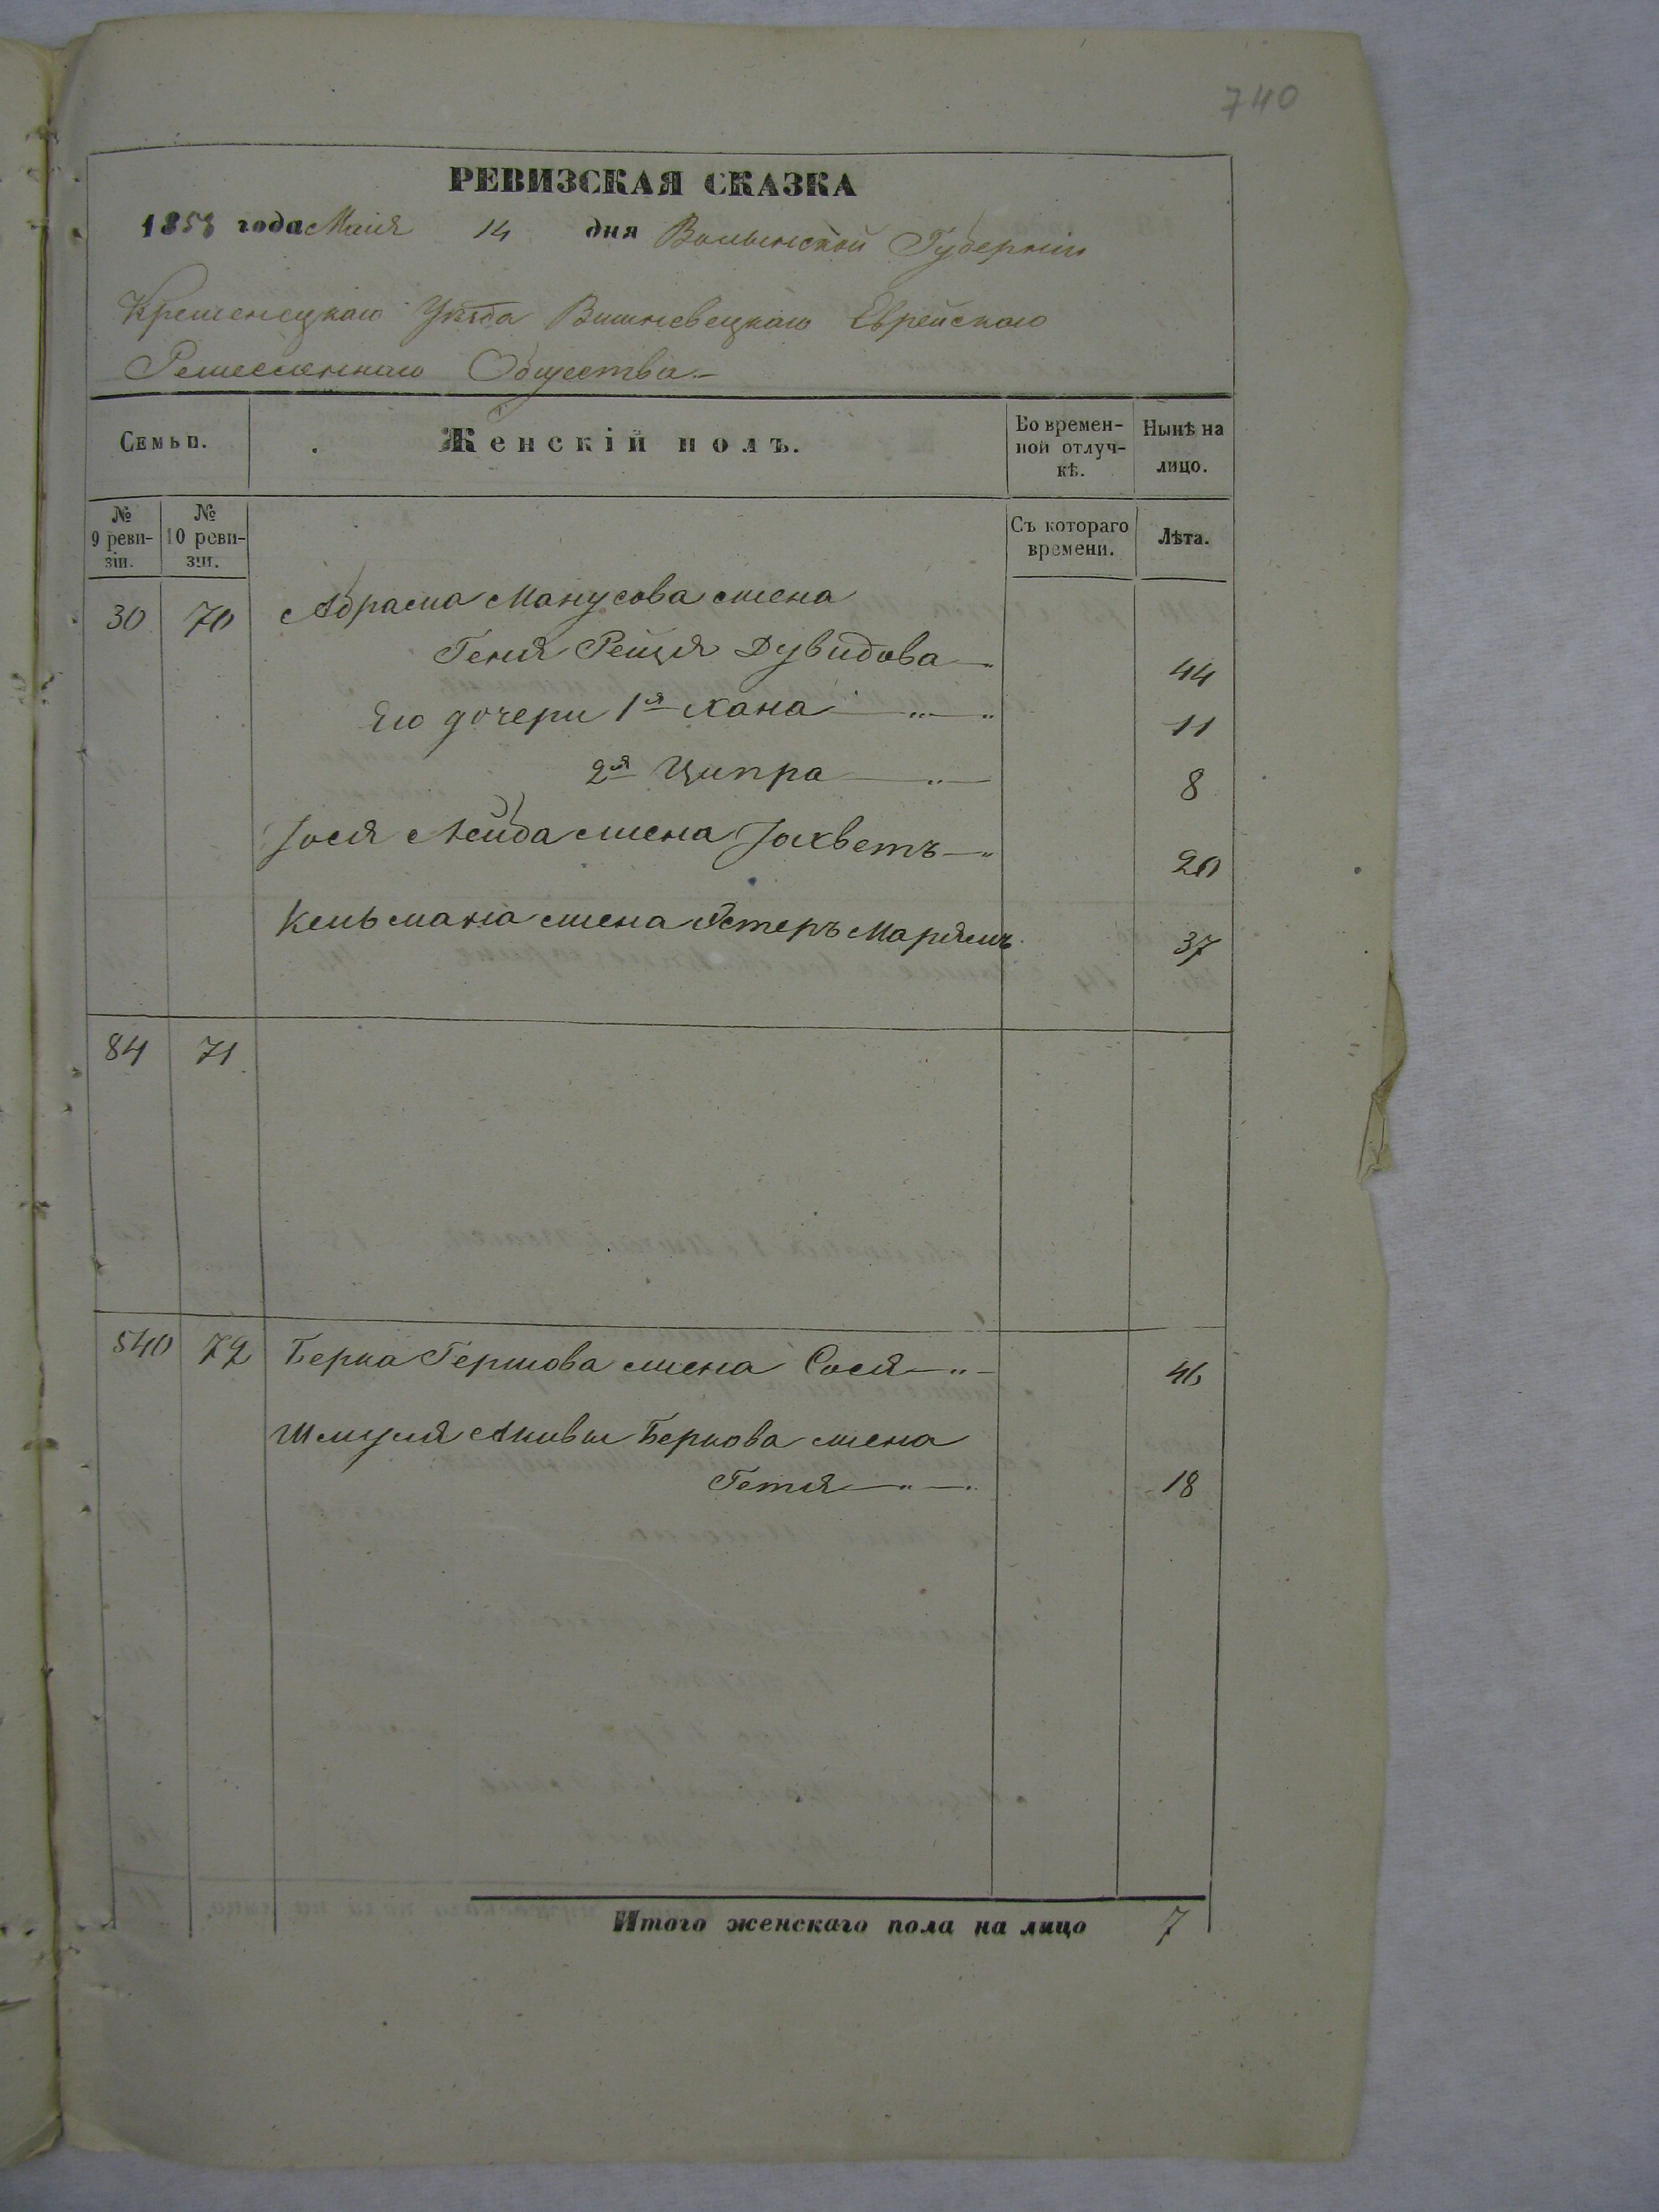 740
РЕВИЗСКАЯ СКАЗКА
1858 года Маія 14 дня Волынской Губерніи
Кременецкаго Уѣзда Вишневецкаго Еврейскаго
Ремесленнаго Общества.–
Семьи. Женскій полъ. Во времен-ной отлуч-кѣ. Нынѣ на лицо.
№ 9 реви-зіи. № 10 реви-зіи. Съ котораго времени. Лѣта.
30 70 Абрама Манусова жена
Геня Рейзя Дувидова — „ 44
Его дочери 1я Хана — „ — „ 11
2я Ципра — „ — 8
Іося Лейба жена Іохветъ — „ 20
Кельмана жена Эстеръ Марьямъ 37
84 71
540 72 Берка Гершова жена Сося — „ – 46
Шмуля Акивы Беркова жена
Гетя — „ — „ 18
Итого женскаго пола на лицо 7